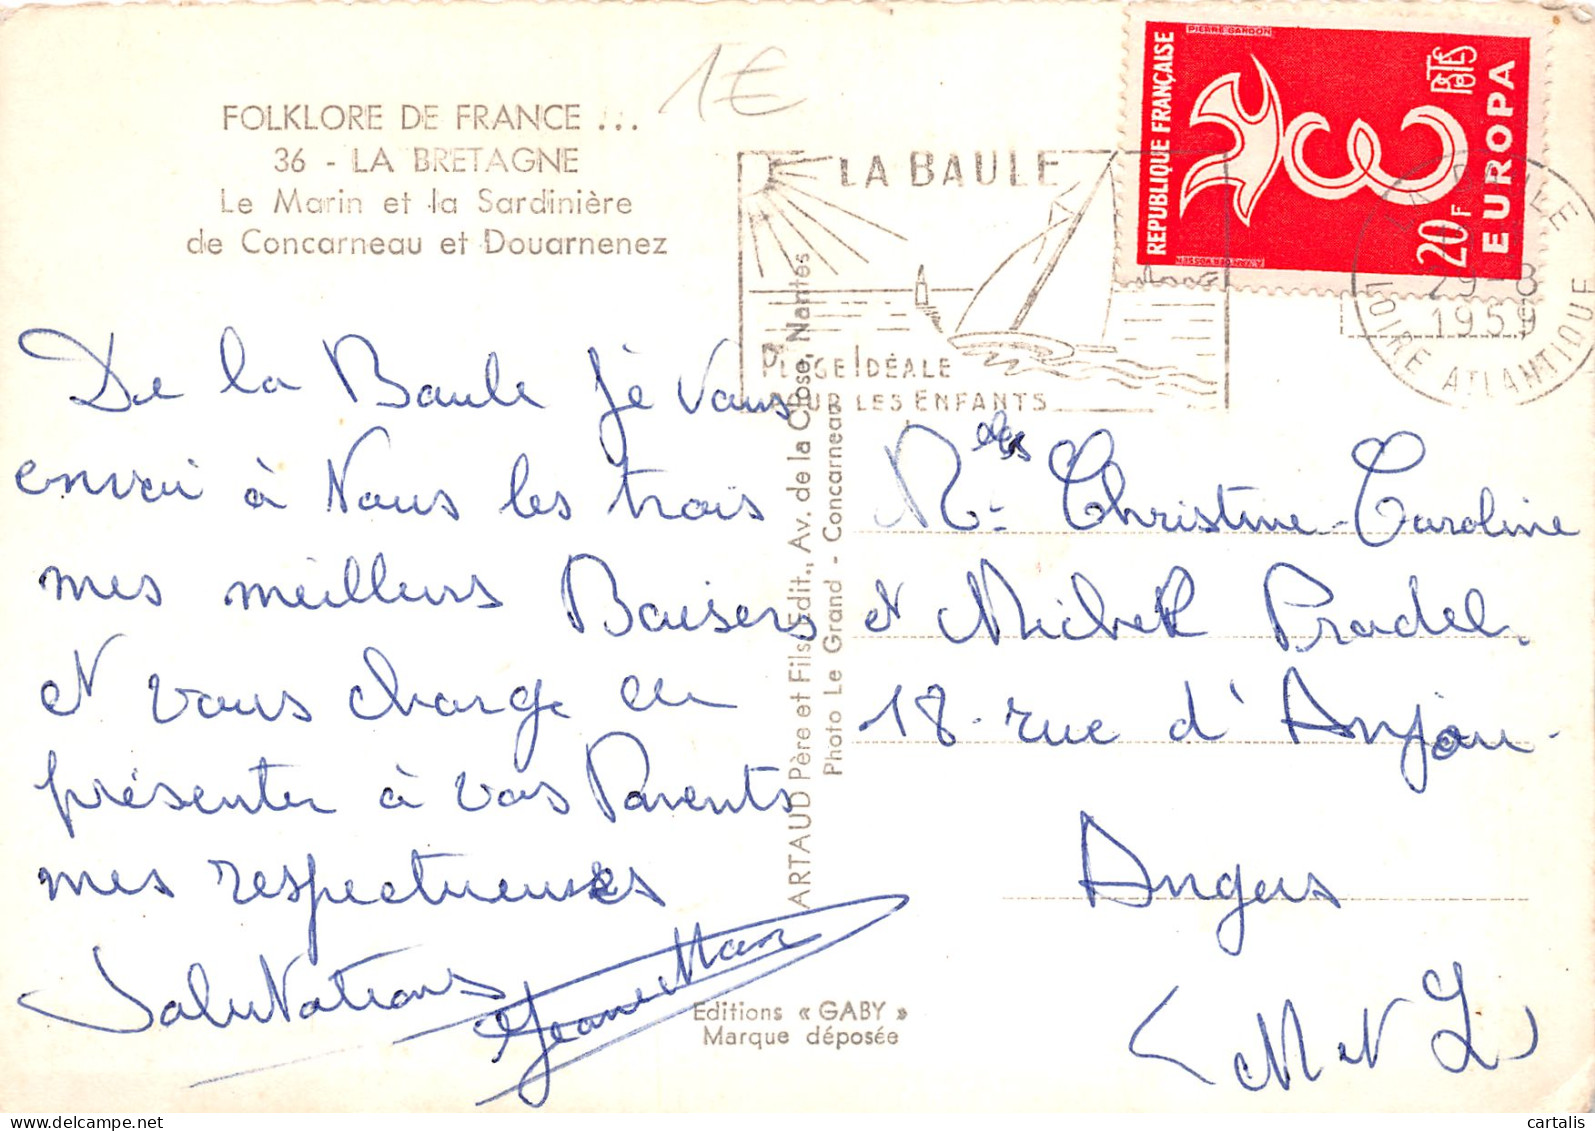 1€
FOLKLORE DE FRANCE ...
36 - LA BRETAGNE
Le Marin et la Sardinière
de Concarneau et Douarnenez
LA BAULE
PLAGE IDÉALE
POUR LES ENFANTS
PIERRE GANDON
REPUBLIQUE FRANÇAISE
POSTES
20F
EUROPA
A. VAN DER VOSSEN
LA BAULE
29-8
1959
LOIRE ATLANTIQUE
De la Baule je vous
envoi à Vous les trois
mes meilleurs Baisers
et vous charge en
présenter à vos Parents
mes respectueuses
Salutations
ARTAUD Père et Fils, Édit., Av. de la Close, Nantes
Photo Le Grand - Concarneau
Editions « GABY »
Marque déposée
Christine-Caroline
et Michel Pradel.
18 rue d'Anjou.
Angers
(M et L)
cartalis
delcampe.net